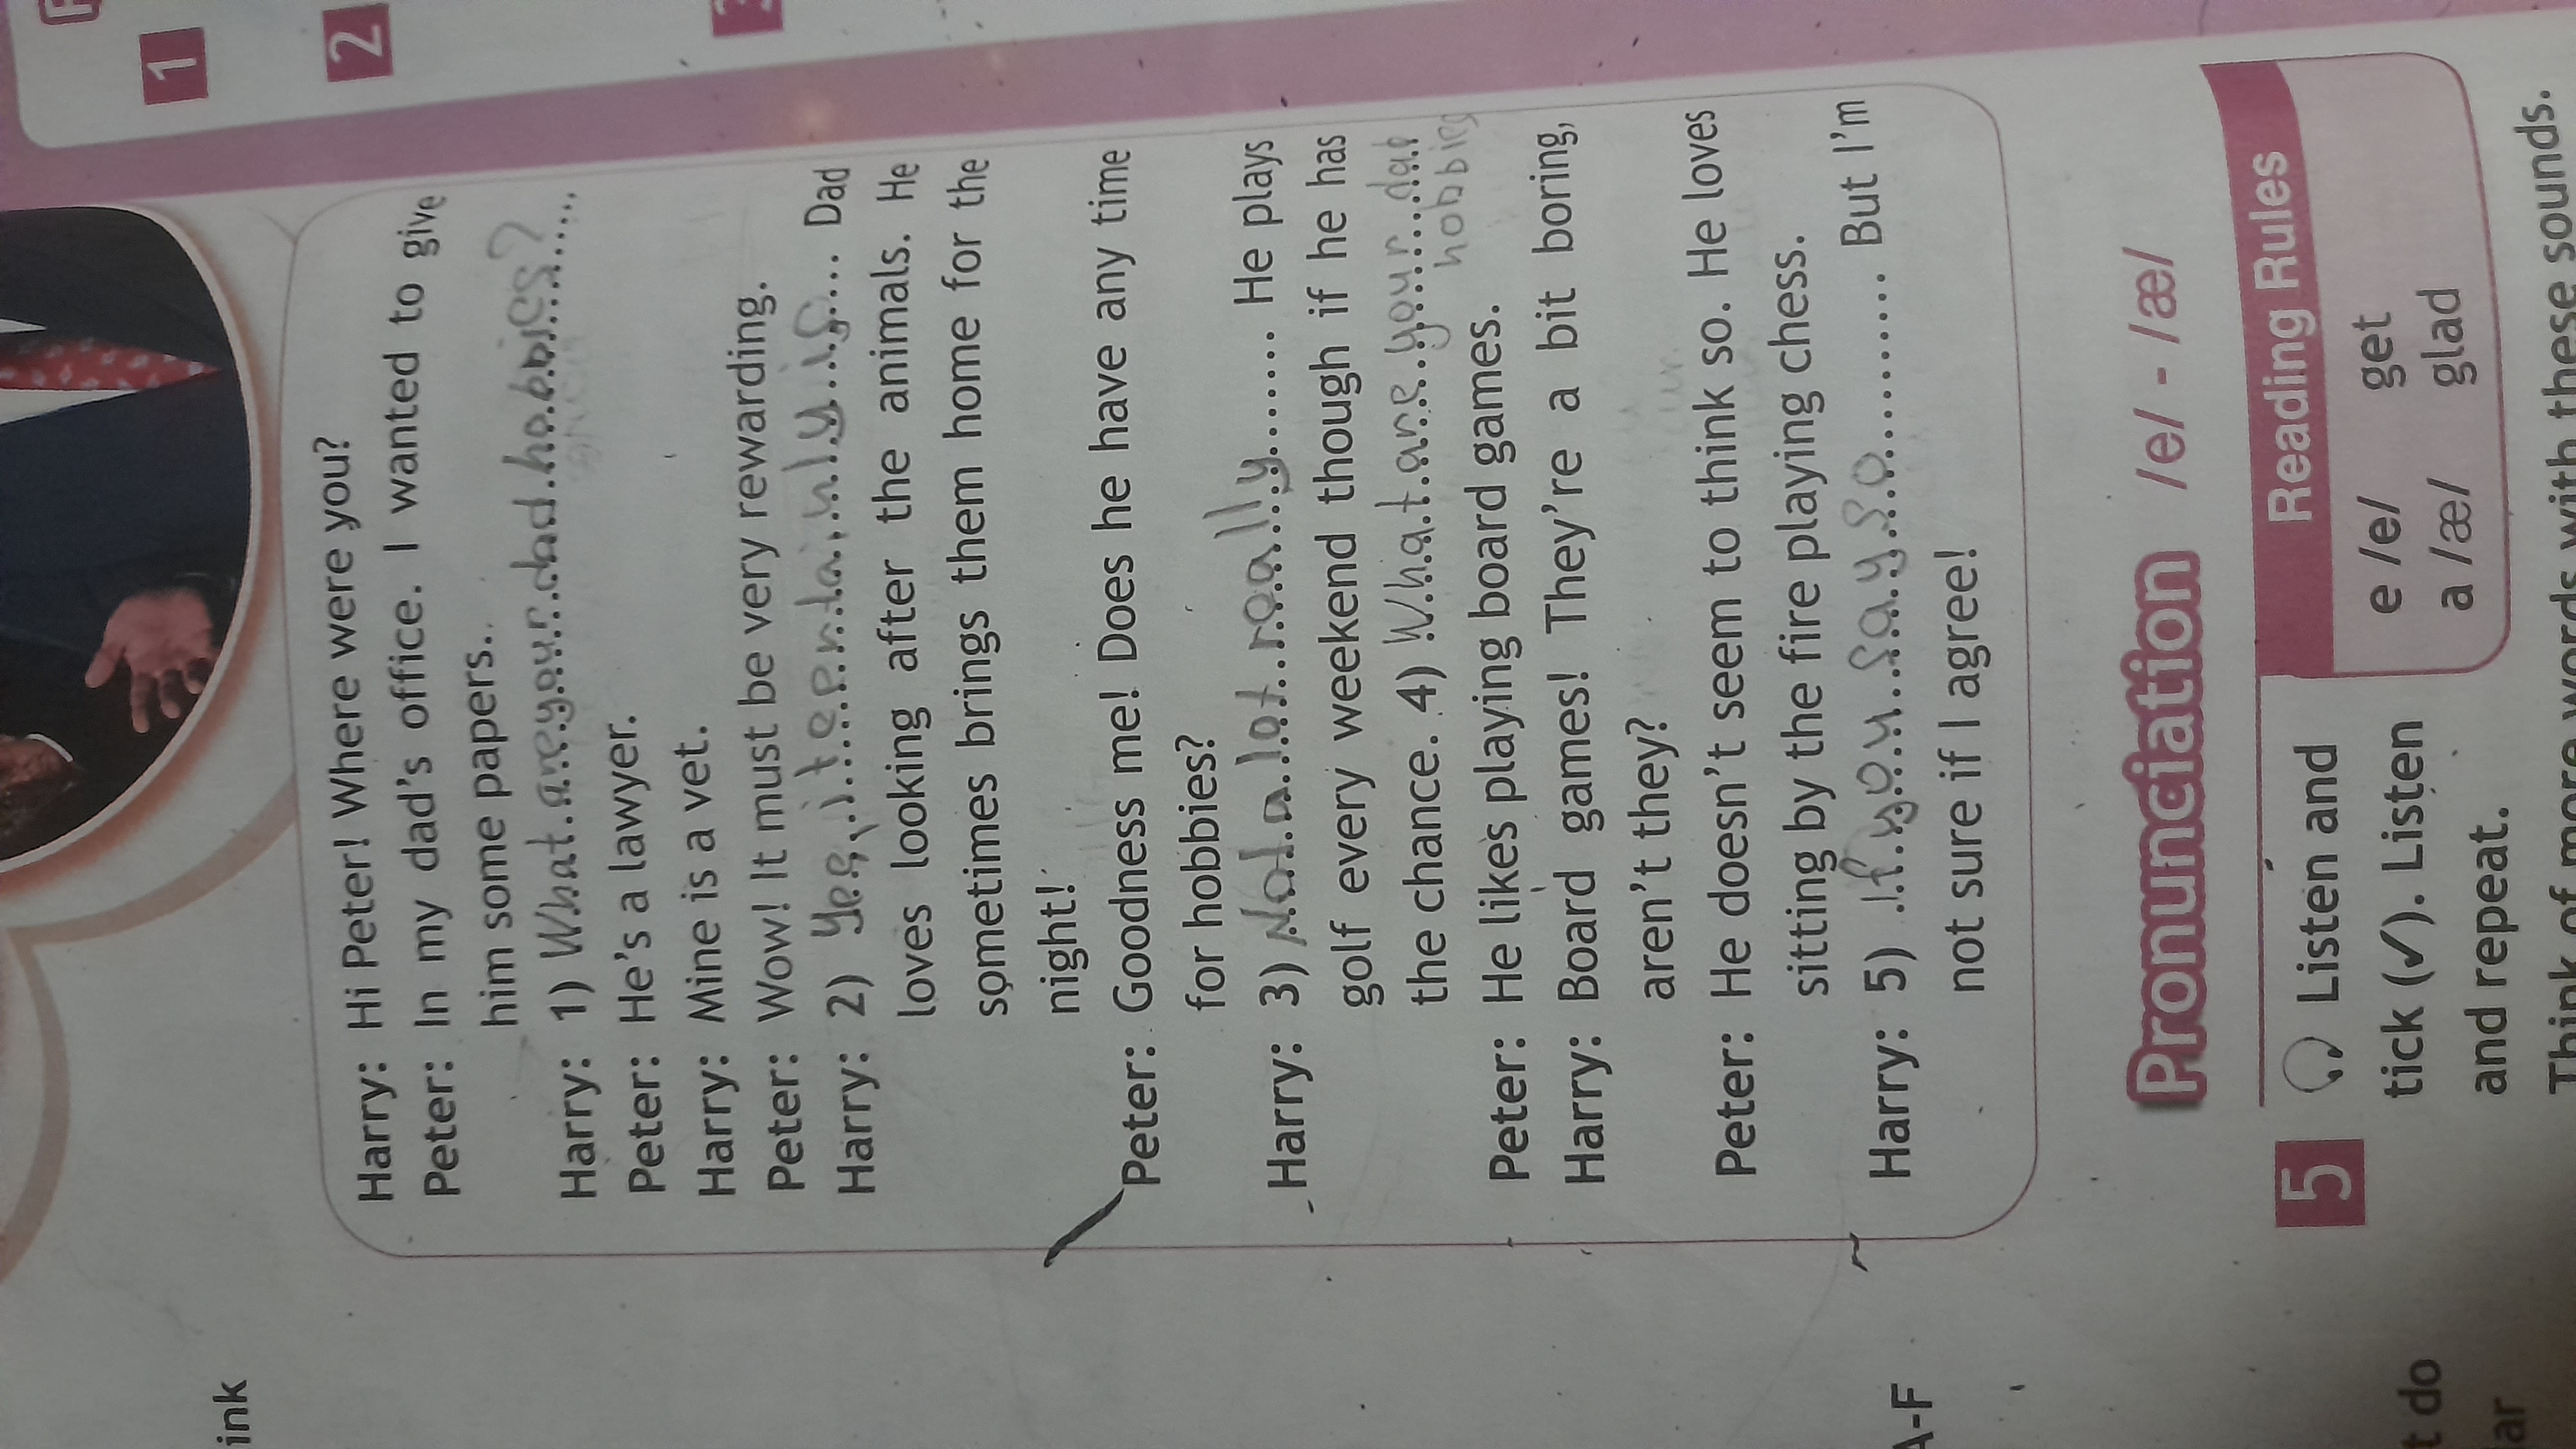 1
2
ink
Harry: Hi Peter! Where were you?
Peter: In my dad's office. I wanted to give
him some papers.
Harry: 1) What are your dad hobbies?
Peter: He's a lawyer.
Harry: Mine is a vet.
Peter: Wow! It must be very rewarding.
Harry: 2) Yes, it is. Dad
loves looking after the animals. He
sometimes brings them home for the
night!
Peter: Goodness me! Does he have any time
for hobbies?
Harry: 3) Not a lot really He plays
golf every weekend though if he has
the chance. 4) What are your dad
hobbies
Peter: He likes playing board games.
Harry: Board games! They're a bit boring,
aren't they?
Peter: He doesn't seem to think so. He loves
sitting by the fire playing chess.
Harry: 5) If you say so But I'm
not sure if I agree!
A-F
Pronunciation /e/ - /æ/
5 Listen and
tick (✓). Listen
and repeat.
Reading Rules
e /e/ get
a /æ/ glad
Think of more words with these sounds.
t do
ar